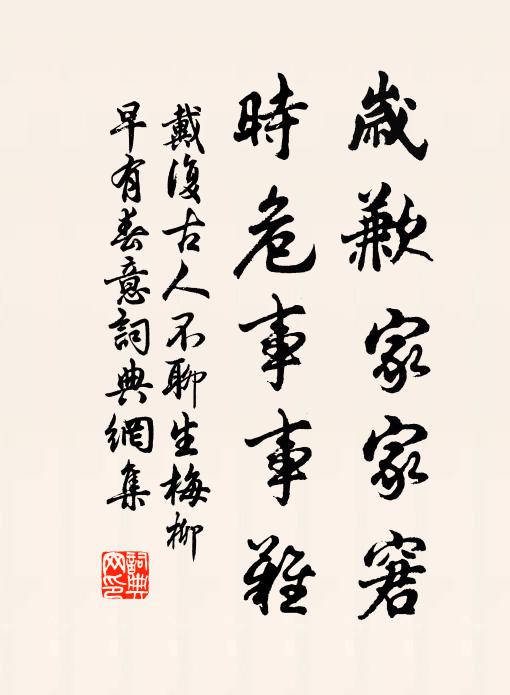 歲歉家家窘
時危事事難
戴復古人不聊生梅柳
早有春意詞典網集
詞典网印